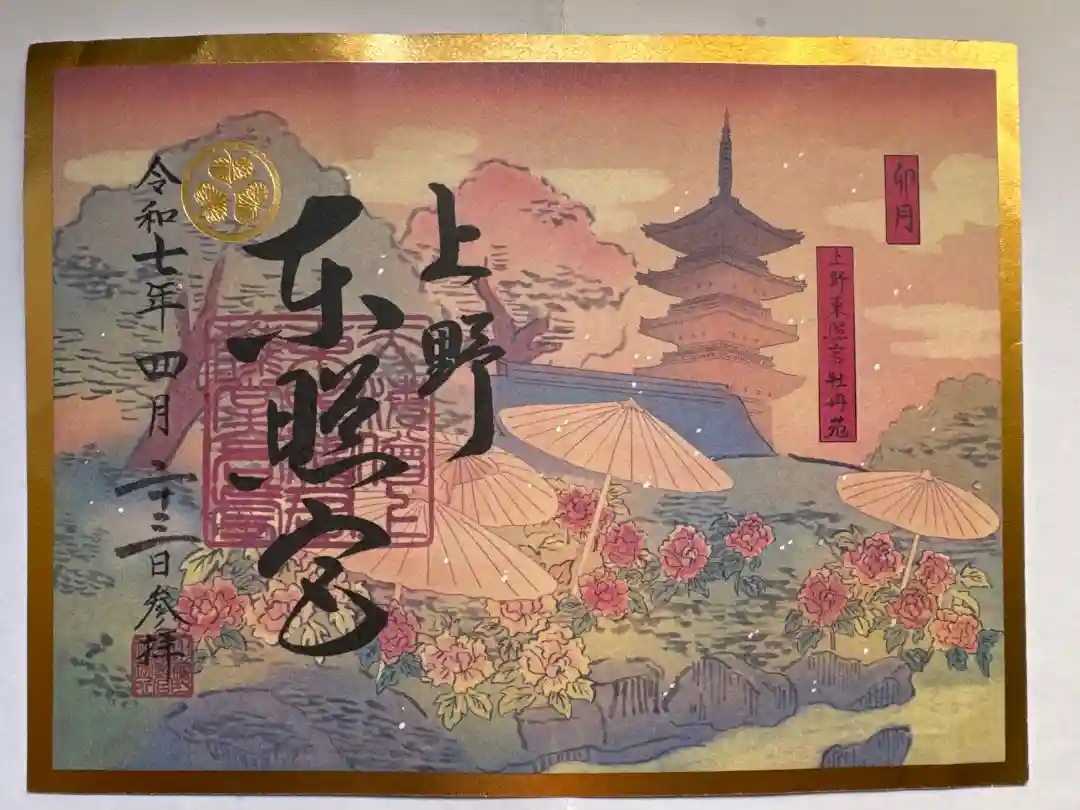 卯月
上野東照宮牡丹苑
上野
東照宮
令和七年四月二十三日参拝